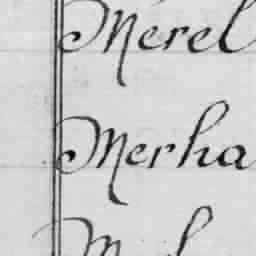 Mérel
Merha